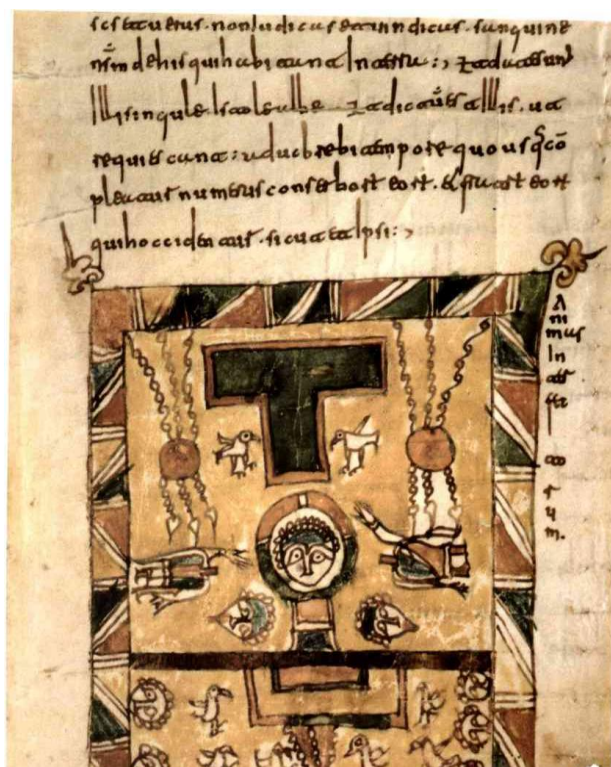 scs et uerus. non Iudicas et uindicas. sanguine
nsm de his qui habitant In terra:
Illis singule stole albe Illis. ut
requiescant: adhuc brebi tempore quousq co
pleatur numerus conserborum eorum. et fratrum eorum
qui occidentur. sicut et Ipsi:
A
ni
mas
In
to
r
u
m.